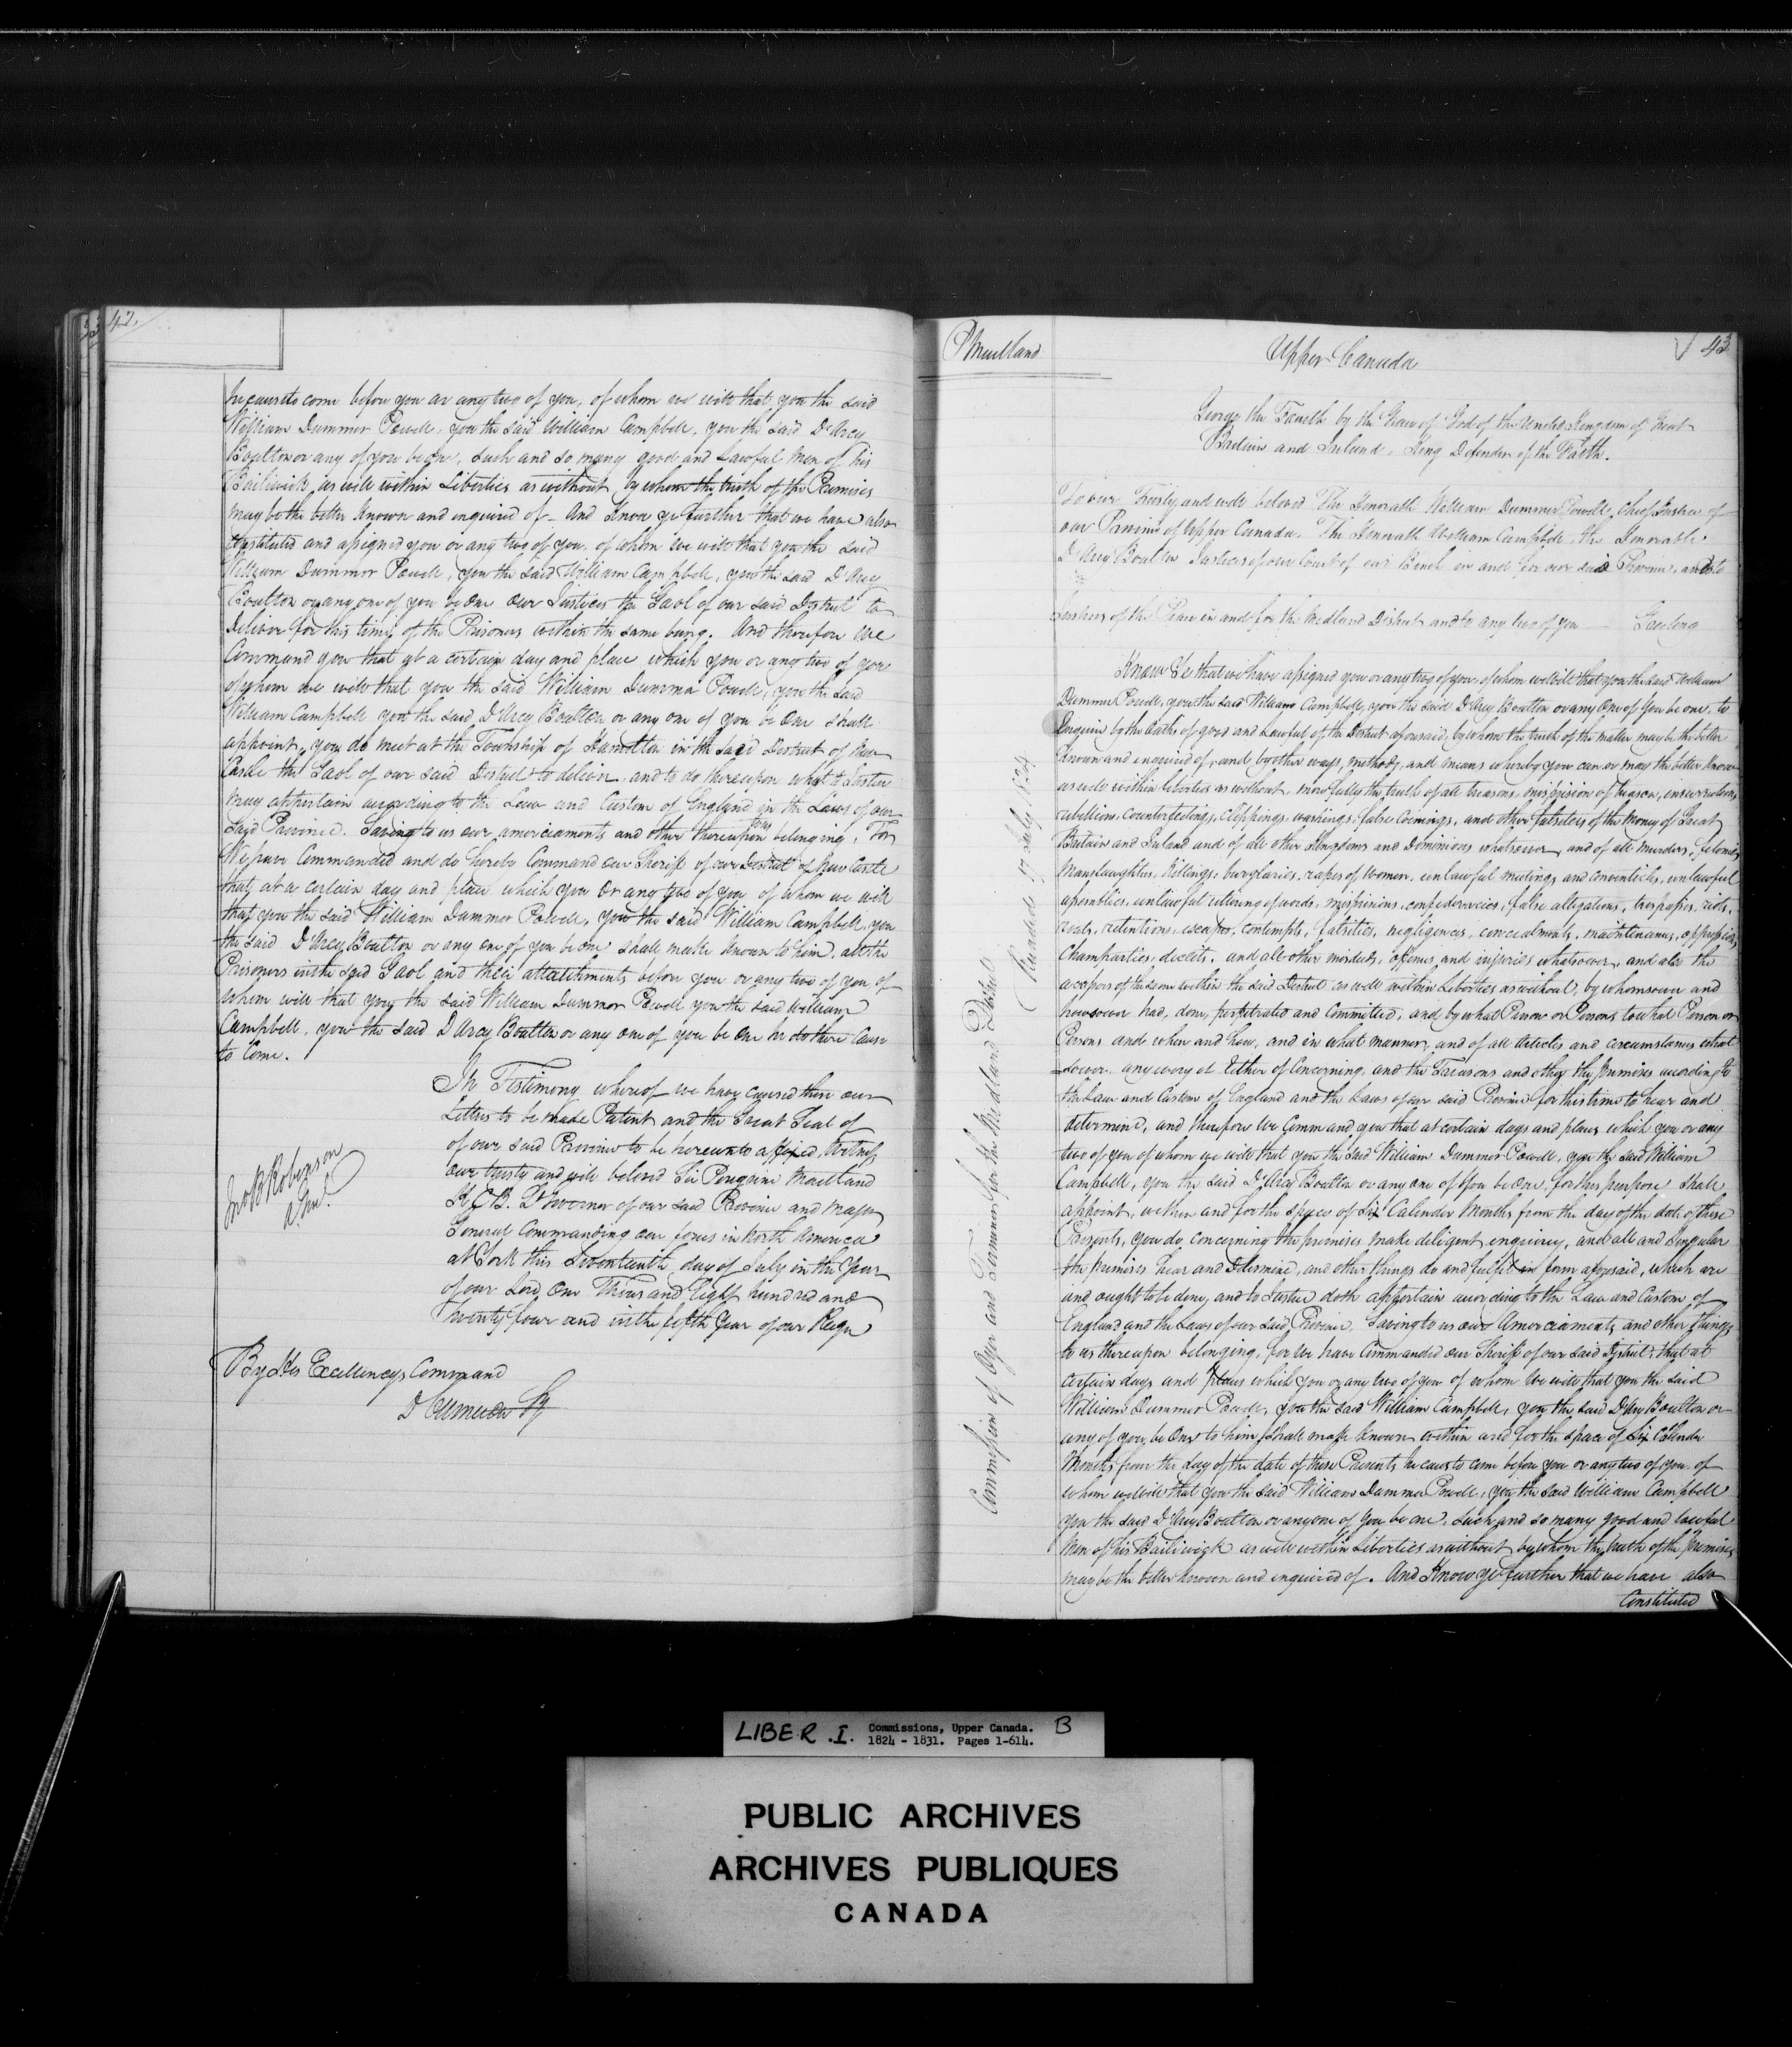 42
he cause to come before you or any two of you, of whom we will that you the said
William Dummer Powell, you the said William Campbell, you the said D'Arcy
Boulton or any of you be one, such and so many good and Lawful Men of his
Bailiwick as well within Liberties as without by whom the truth of the Premises
may be the better known and inquired of - And Know ye further that we have also
Constituted and assigned you or any two of you, of whom we will that you the said
William Dummer Powell, you the said William Campbell, you the said D'Arcy
Boulton or any one of you be One Our Justices the Gaol of our said District to
deliver for this time, of the Prisoners within the same being. And therefore We
Command you that at a certain day and place which you or any two of you
of whom we will that you the said William Dummer Powell, you the said
William Campbell you the said D'Arcy Boulton or any one of you be One shall
appoint, you do meet at the Township of Hamilton in the said District of New
Castle the Gaol of our said District to deliver and to do thereupon what to Justice
may appertain according to the Law and Custom of England in the Laws of our
Said Province. Saving to us our amerciaments and other thereupon to us belonging, For
We have Commanded and do hereby Command our Sheriff of our District of New Castle
that at a certain day and place which you Or any two of you of whom we will
that you the said William Dummer Powell, you the said William Campbell, you
the said D'Arcy Boulton or any one of you be one shall make known to him, all the
Prisoners in the said Gaol and their attachments before you or any two of you of
whom will that you the said William Dummer Powell you the said William
Campbell, you the said D'Arcy Boulton or any one of you be One he do there Cause
to Come.
In Testimony whereof we have caused these our
Letters to be made Patent and the Great Seal of
of our said Province to be hereunto affixed, Witness
our trusty and well beloved Sir Peregrine Maitland
K.C.B. Lt Governor of our said Province and Major
General Commanding our forces in North America
at York this Seventeenth day of July in the Year
of our Lord One Thousand Eight hundred and
twenty four and in the fifth Year of our Reign
Jno B Robinson
A. Genl.
By His Excellencys Command
D Cameron Sy
P Maitland
Upper Canada
43
George the Fourth by the Grace of God of the United Kingdom of Great
Britain and Ireland, King Defender of the Faith.
To our Trusty and well beloved The Honorable William Dummer Powell, Chief Justice of
our Province of Upper Canada. The Honorable William Campbell, the Honorable
D'Arcy Boulton Justices of our Court of our Bench in and for our said Province, and to
Justices of the Peace in and for the Midland District and to any two of you Greeting
Know Ye that we have assigned you or any two of you, of whom we will that you the said William
Dummer Powell, you the said William Campbell, you the said D'Arcy Boulton or any One of you be one, to
Enquire by the Oaths of good and Lawful of the District aforesaid, by whom the truth of the matter may be the better
known and inquired of, and by other ways, methods, and means whereby you can or may the better know
as well within liberties as without, more fully the truth of all treasons, misprision of treason, insurrections
rebellions, counterfeitings, clippings, washings, false coinings, and other falsities of the Money of Great
Britain and Ireland and of all other Kingdoms and Dominions whatsoever, and of all murders, felonies
Manslaughters, killings, burglaries, rapes of women, unlawful meetings and conventicles, unlawful
assemblies, unlawful uttering of words, misprisions, confederacies, false allegations, trespasses, riots,
routs, retentions, escapes, contempts, falsities, negligences, concealments, maintenances, oppressions,
Champarties, deceits, and all other misdeeds, offences and injuries whatsoever, and also the
accessors of the same within the said District as well within Liberties as without, by whomsoever and
howsoever had, done, perpetrated and Committed, and by what Person or Persons to what Person or
Persons and when and how, and in what manner, and of all Articles and circumstances what
soever any every or Either of Concerning, and the Treasons and other the premises according to
the Law and Custom of England and the Laws of our said Province for this time to hear and
determine, and therefore We Command you that at certain days and places which you or any
two of you of whom we will that you the said William Dummer Powell, you the said William
Campbell, you the said D'Arcy Boulton or any one of you be One, for this purpose shall
appoint, within and for the space of Six Calender Months from the day of the date of these
Presents, you do concerning the premises make diligent enquiry, and all and singular
the premises hear and determine, and other things do and fulfil in form aforesaid, which are
and ought to be done, and to Justice doth appertain according to the Law and Custom of
England and the Laws of our said Province. Saving to us our Amerciaments and other things
to us thereupon belonging, for We have Commanded our Sheriff of our said District, that at
certain days and places which you or any two of you of whom We will that you the said
William Dummer Powell, you the said William Campbell, you the said D'Arcy Boulton or
any of you, be One to him shall make known within and for the space of Six Calender
Months from the day of the date of these Presents he cause to come before you or any two of you of
whom we will that you the said William Dummer Powell, you the said William Campbell
you the said D'Arcy Boulton or any one of you be one, such and so many good and lawful
Men of his Bailiwick as well within Liberties as without by whom the truth of the Premises
may be the better known and enquired of. And Know ye further that we have also
Constituted
Commission of Oyer and Terminer for the Midland District
Recorded 17 July 1824
LIBER. I. Commissions, Upper Canada. B
1824 - 1831. Pages 1-614.
PUBLIC ARCHIVES
ARCHIVES PUBLIQUES
CANADA